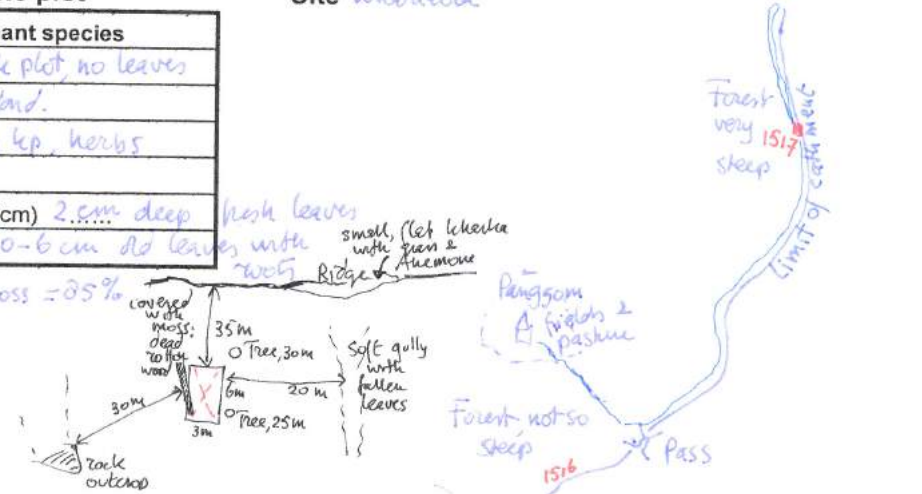 Site
ant species
plot, no leaves
kp, herbs
cm) 2 cm deep fresh leaves
0-6 cm old leaves with
roots
oss = 85%
small, flat kharka
with grass &
Anemone
Ridge
covered
with
moss:
dead
rotten
wood
35m
Tree, 30m
6m
20 m
Soft gully
with
fallen
leaves
Tree, 25m
3m
30m
rock
outcrop
Forest
very
steep
1517
Limit of catchment
Panggom
fields &
pasture
Forest not so
steep
Pass
1516